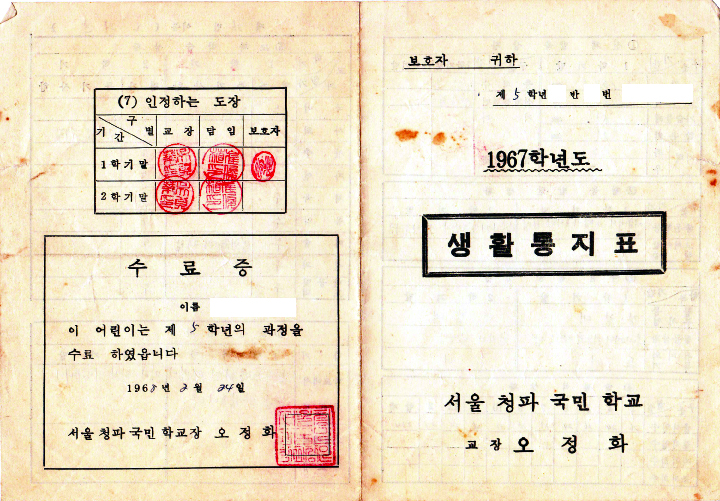 (7) 인정하는 도장
구 별
기 간
교 장
담 임
보호자
1 학 기 말
2 학 기 말
수 료 증
이름
이 어린이는 제 5 학년의 과정을
수료 하였읍니다
1968 년 2 월 24 일
서울 청파 국민 학교장 오 정 화
보호자 귀하
제 5 학년 반 번
1967학년도
생 활 통 지 표
서울 청파 국민 학교
교 장 오 정 화